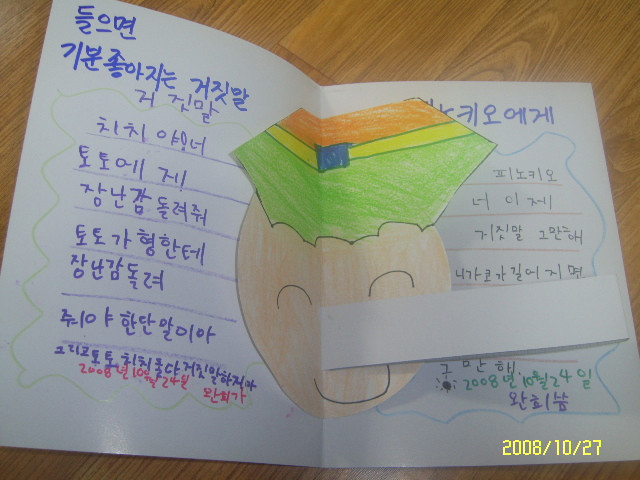 들으면
기분좋아지는 거짓말
거짓말
치치야 너
토토에 게
장난감 돌려줘
토토가 형한테
장난감 돌려
줘야 한단말이아
그리고 토토 치치 둘다 거짓말하지아
2008년 10월 24일
완희가
노키오에게
피노키오
너 이제
거짓말 그만해
니가 코가 길어 지면
그만해.
2008년 10월 24일
완희씀
2008/10/27